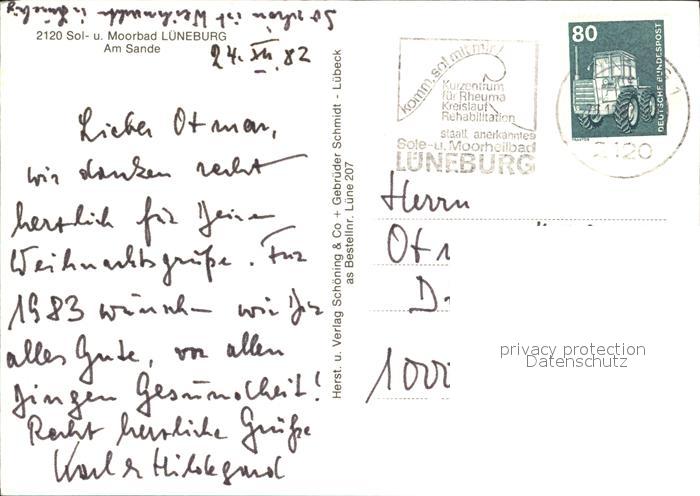 So schön ist Weihnachten in Lüneburg
2120 Sol- u. Moorbad LÜNEBURG
Am Sande
24. XII. 82
Lieber Otmar,
wir danken recht
herzlich für Deine
Weihnachtsgrüße. Für
1983 wünschen wir Dir
alles Gute, vor allen
Dingen Gesundheit!
Recht herzliche Grüße
Karl & Hildegard
Herst. u. Verlag Schöning & Co + Gebrüder Schmidt - Lübeck
as Bestellnr. Lüne 207
komm, sol mit mir!
Kurzentrum
für Rheuma
Kreislauf
Rehabilitation
staatl. anerkanntes
Sole- u. Moorheilbad
LÜNEBURG
80
DEUTSCHE BUNDESPOST
TRAKTOR
2120
Herrn
Ot
D.
1000
privacy protection
Datenschutz